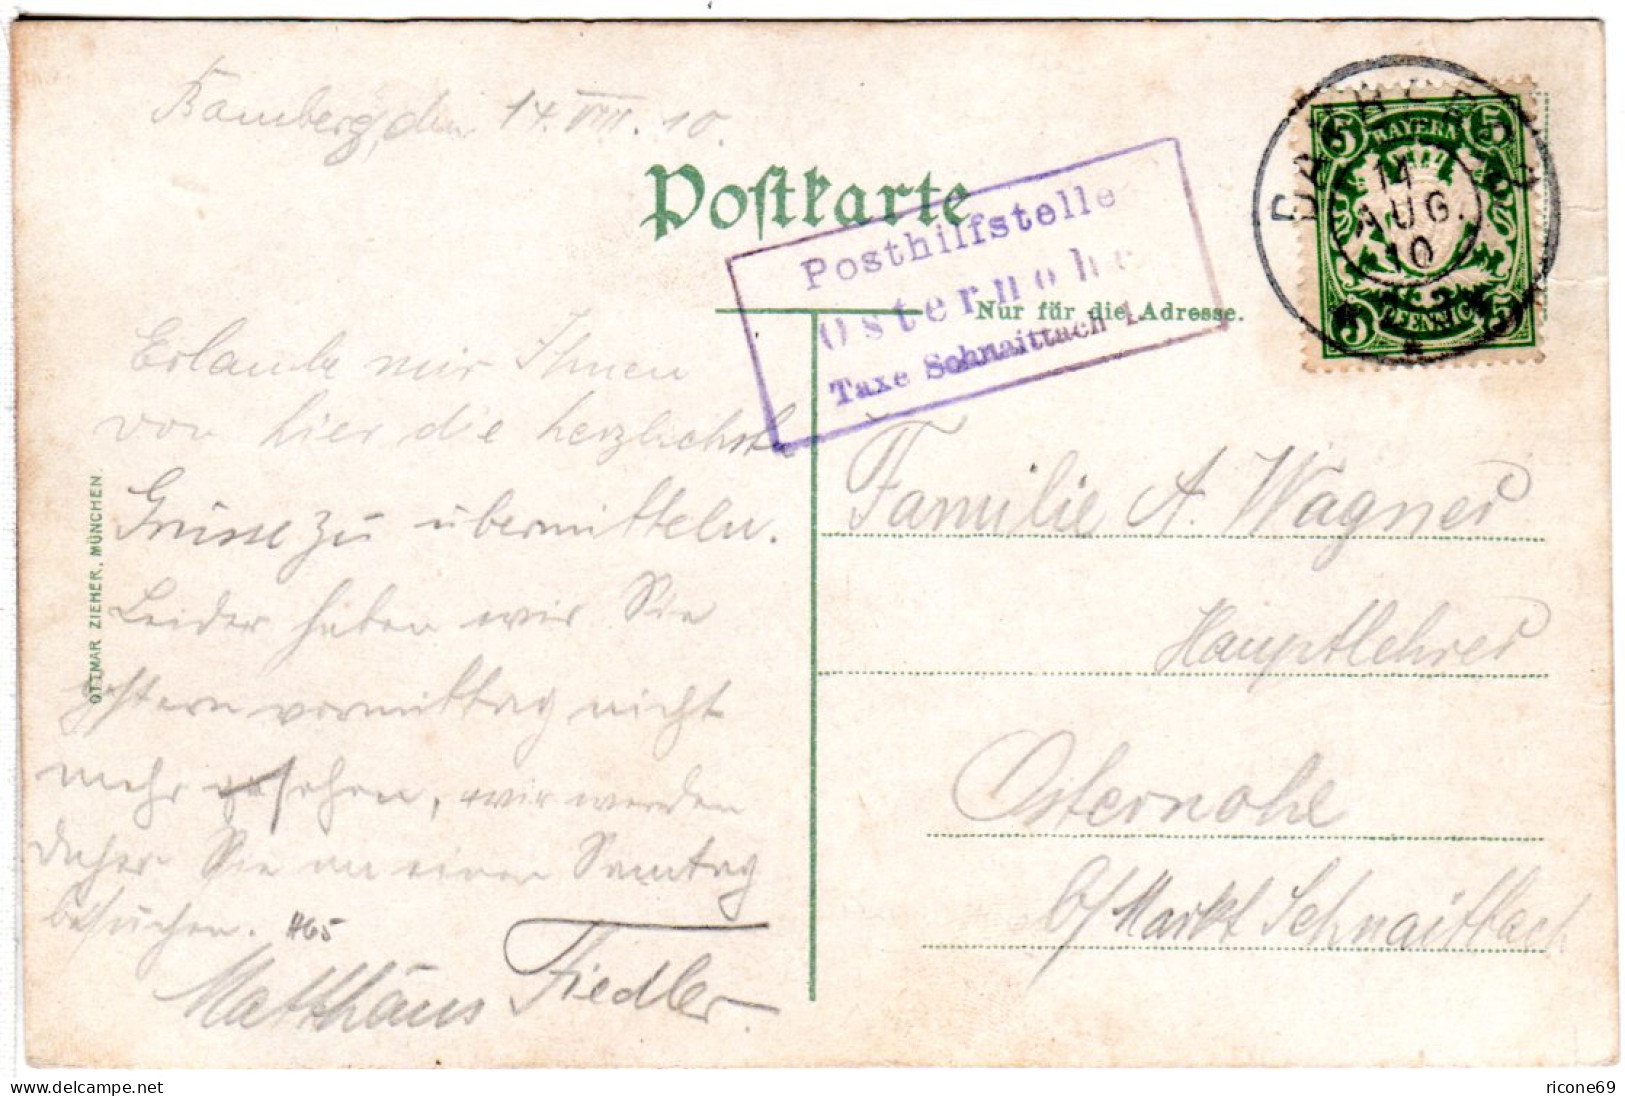 Bamberg, den 14. VIII. 10.
Postkarte
Nur für die Adresse.
Posthilfstelle
Osternohe
Taxe Schnaittach 1.
BAMBERG
14
AUG.
10
5 BAYERN 5
5 PFENNIG 5
Erlaube mir Ihnen
von hier die herzlichste
Grüsse zu übermitteln.
Leider haben wir Sie
gestern vormittag nicht
mehr gesehen, wir werden
daher Sie an einen Sonntag
besuchen. H65
Matthäus Fiedler.
Familie A. Wagner
Hauptlehrer
Osternohe
b/ Markt Schnaittach
OTTMAR ZIEHER, MÜNCHEN.
delcampe.net
ricone69